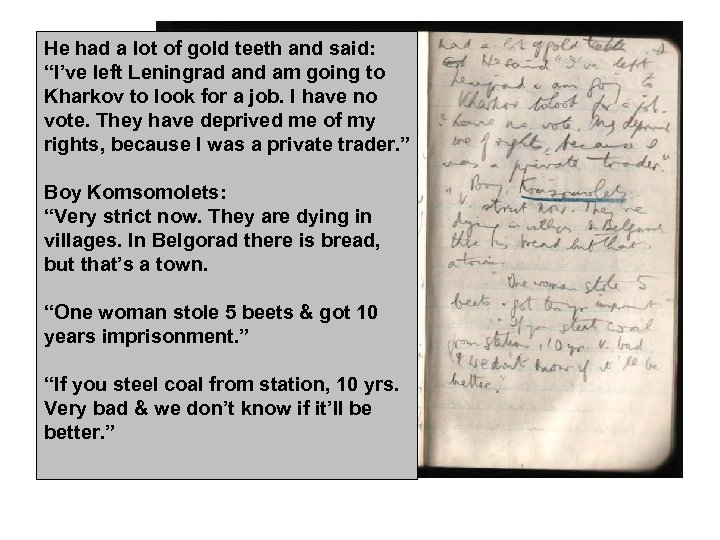 He had a lot of gold teeth and said:
“I’ve left Leningrad and am going to
Kharkov to look for a job. I have no
vote. They have deprived me of my
rights, because I was a private trader. ”
Boy Komsomolets:
“Very strict now. They are dying in
villages. In Belgorad there is bread,
but that’s a town.
“One woman stole 5 beets & got 10
years imprisonment. ”
“If you steel coal from station, 10 yrs.
Very bad & we don’t know if it’ll be
better. ”
had a lot of gold teeth
He said "I've left
Leningrad & am going to
Kharkov to look for a job.
I have no vote. They deprived
me of rights, because I
was a private trader."
Boy, Komsomolets.
"V. strict now. They're
dying in villages. In Belgorad
there is bread but that's
a town.
"One woman stole 5
beets & got ten yrs imprisonment
"If you steal coal
from station, 10 yrs. V. bad
& we don't know if it'll be
better."